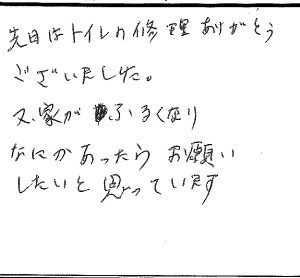 先日はトイレの修理ありがとう
ございました。
又、家がふるくなり
なにかあったらお願い
したいと思っています